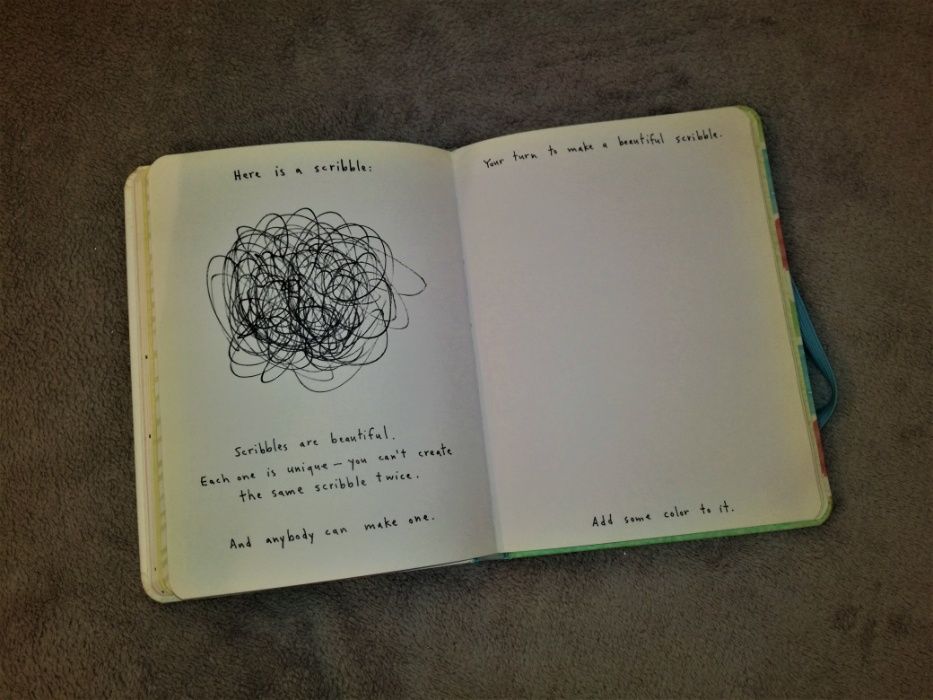 Here is a scribble:
Scribbles are beautiful.
Each one is unique – you can't create
the same scribble twice.
And anybody can make one.
Your turn to make a beautiful scribble.
Add some color to it.